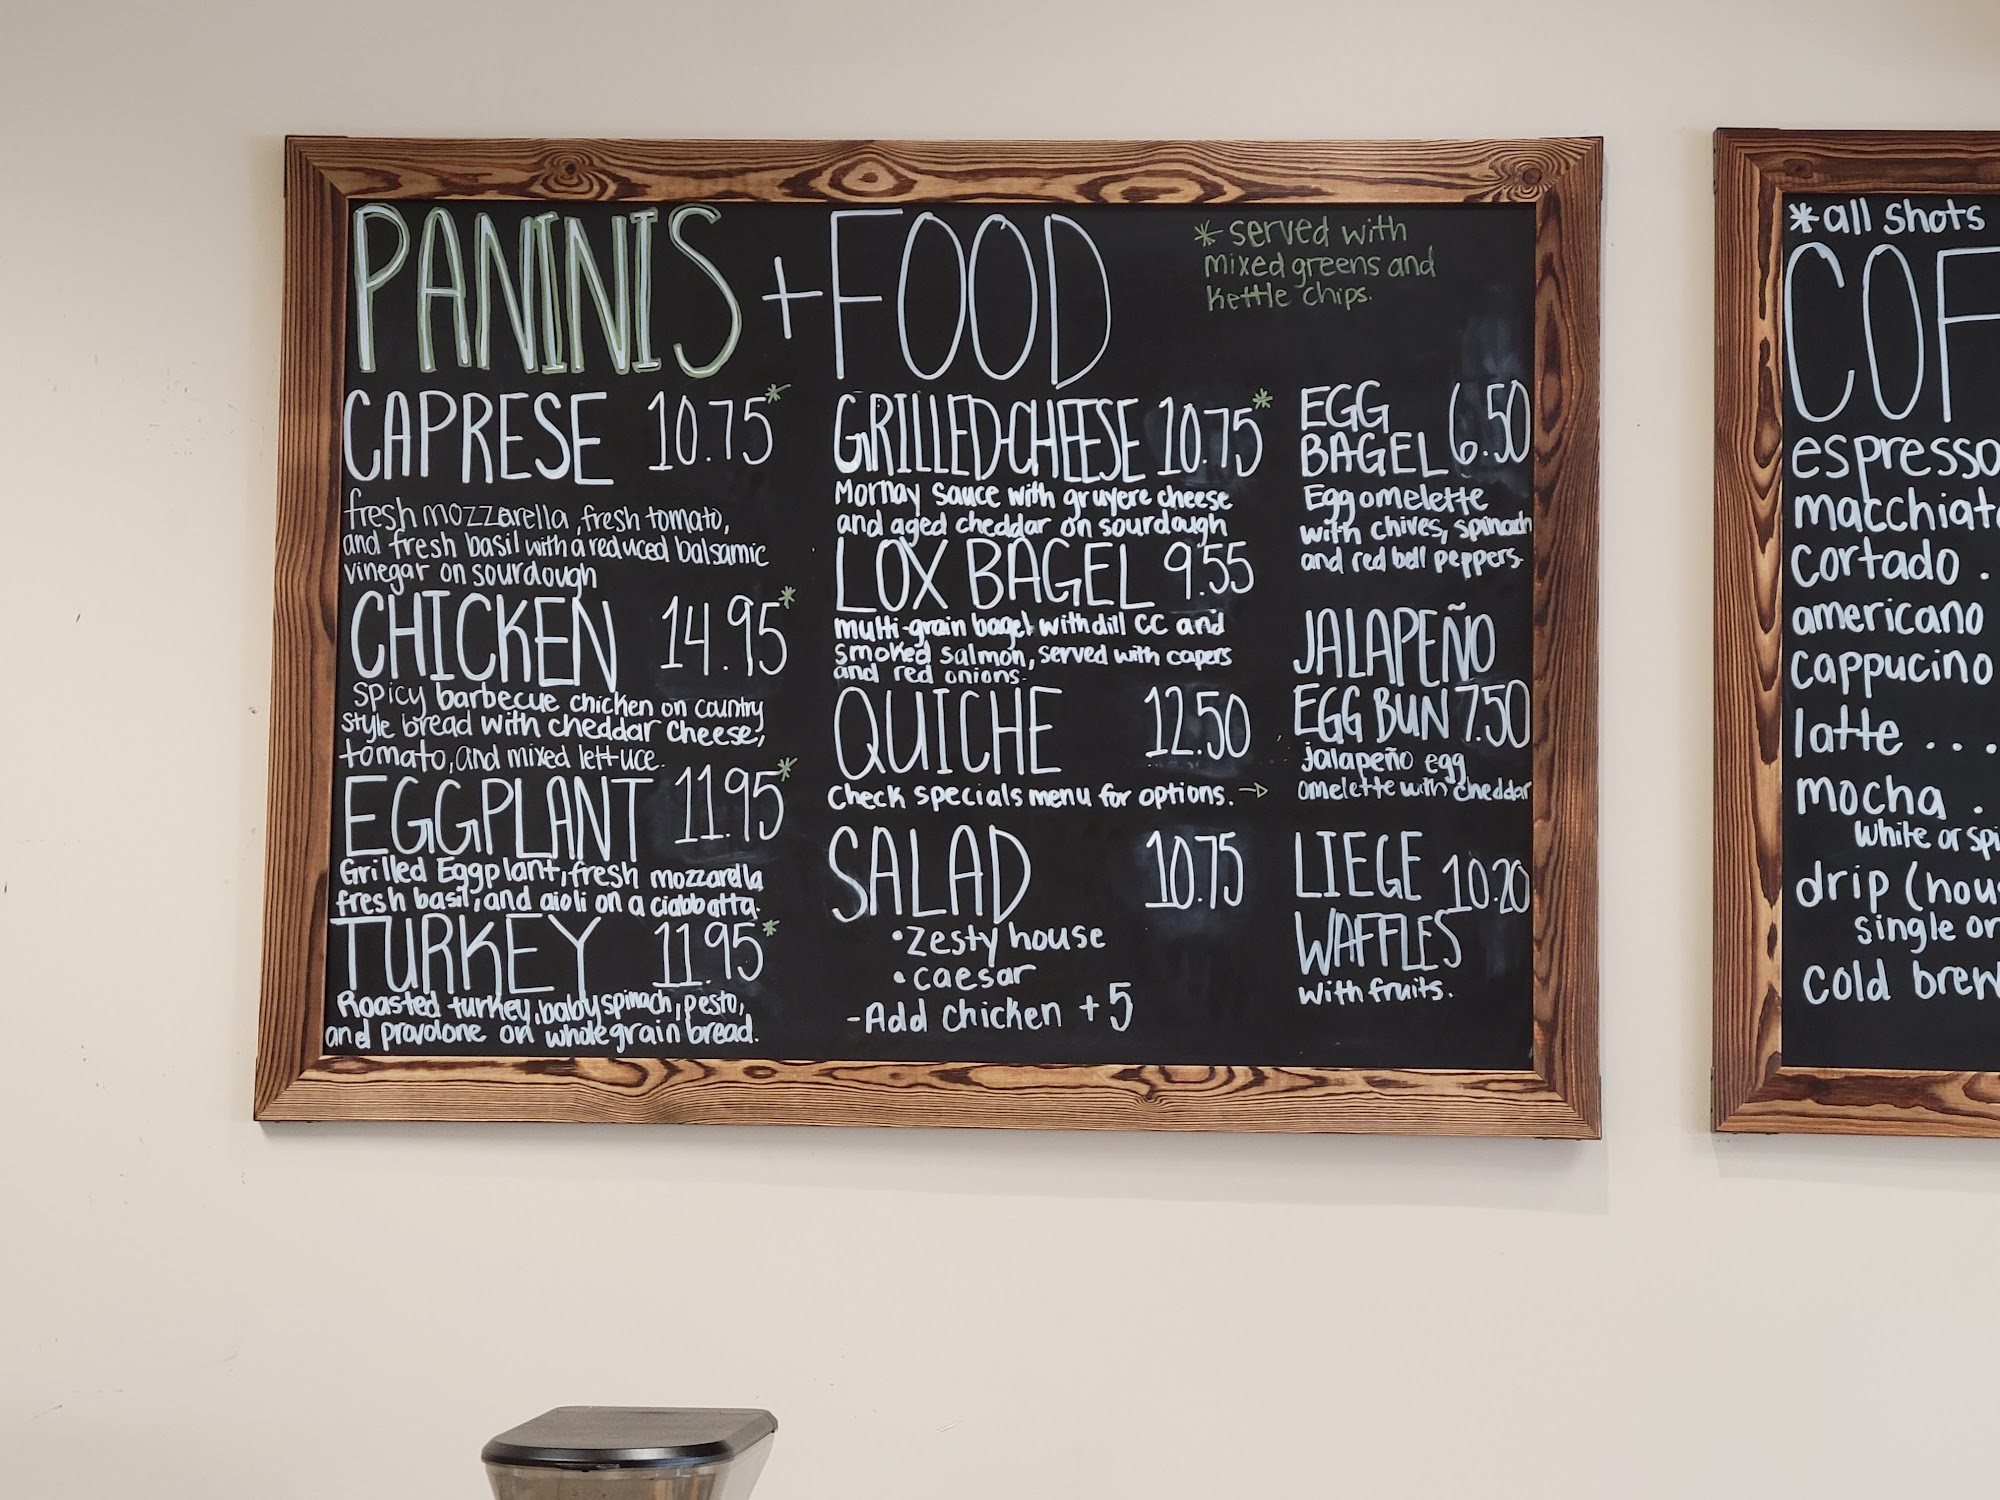 PANINIS + FOOD
* served with
mixed greens and
kettle chips.
CAPRESE 10.75*
fresh mozzarella, fresh tomato,
and fresh basil with a reduced balsamic
vinegar on sourdough
CHICKEN 14.95*
spicy barbecue chicken on country
style bread with cheddar cheese,
tomato, and mixed lettuce.
EGGPLANT 11.95*
Grilled Eggplant, fresh mozzarella
fresh basil, and aioli on a ciabbatta.
TURKEY 11.95*
Roasted turkey, baby spinach, pesto,
and provolone on whole grain bread.
GRILLED-CHEESE 10.75*
Mornay sauce with gruyere cheese
and aged cheddar on sourdough
LOX BAGEL 9.55
multi-grain bagel with dill CC and
smoked salmon, served with capers
and red onions.
QUICHE 12.50
Check specials menu for options. →
SALAD 10.75
• Zesty house
• caesar
- Add chicken + 5
EGG
BAGEL 6.50
Egg omelette
with chives, spinach
and red bell peppers.
JALAPEÑO
EGG BUN 7.50
jalapeño egg
omelette with cheddar
LIEGE 10.20
WAFFLES
with fruits.
*all shots
COF
espresso
macchiato
cortado .
americano
cappucino
latte ....
mocha .
white or spi
drip (hous
single or
cold brew